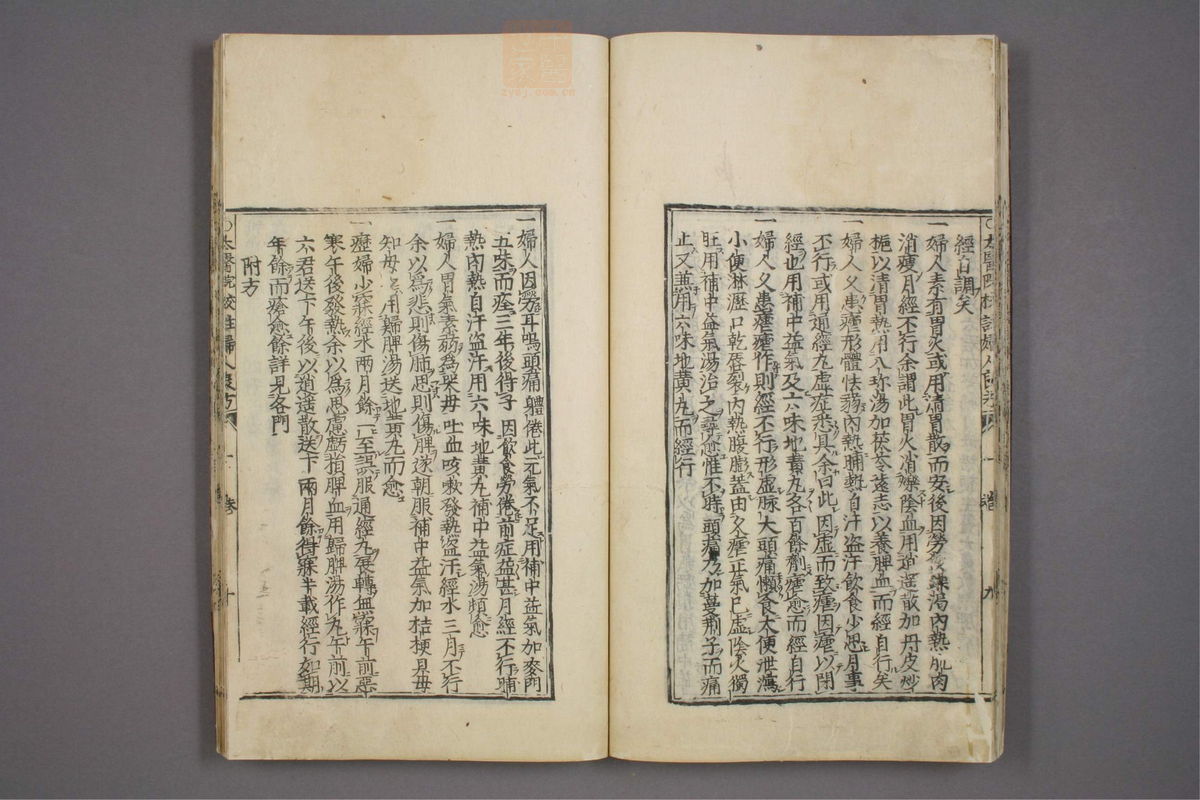 經自調矣
一婦人素有胃火或用清胃散而安後因勞役燥渴內熱肌肉
消瘦月經不行余謂此胃火消爍陰血用逍遥散加丹皮炒
梔以清胃熱用八珎湯加茯苓遠志以養脾血而經自行矣
一婦人久患瘧形體怯弱內熱晡熱自汗盜汗飲食少思月事
不行或用通經丸虛症悉具余曰此因虛而致瘧因瘧以閉
經也用補中益氣及六味地黃丸各百餘劑瘧愈而經自行
一婦人久患瘧瘧作則經不行形虛脉大頭痛懶食大便泄瀉
小便淋瀝口乾唇裂內熱腹膨蓋由久瘧正氣已虛陰火獨
旺用補中益氣湯治之諸症愈惟不時頭痛乃加蔓荊子而痛
止又兼用六味地黃丸而經行
一婦人因勞耳鳴頭痛軆倦此元氣不足用補中益氣加麥門
五味而痊三年後得子因飲食勞倦前症益甚月經不行晡
熱內熱自汗盜汗用六味地黃丸補中益氣湯頓愈
一婦人胃氣素弱爲哭母吐血咳嗽發熱盜汗經水三月不行
余以爲悲則傷肺思則傷脾遂朝服補中益氣加桔梗貝母
知母夕用歸脾湯送地黃丸而愈
一瘞婦少寐經水兩月餘一至誤服通經丸展轉無寐午前惡
寒午後發熱余以爲思慮虧損脾血用歸脾湯作丸午前以
六君送下午後以逍遥散送下兩月餘得寐半載經行如期
年餘而瘡愈餘詳見各門
附方
太醫院校註婦人良方
一卷
十